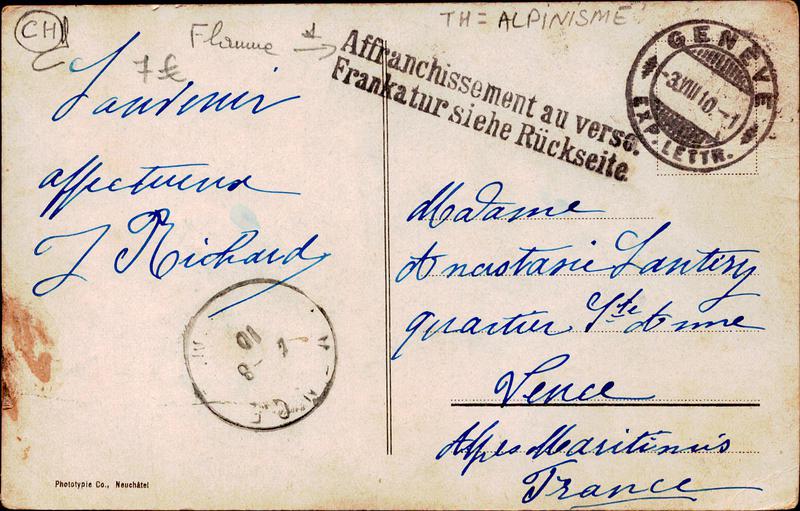 CH
TH = ALPINISME
Flamme
7 €
Affranchissement au verso.
Frankatur siehe Rückseite.
GENÈVE
-3.VIII.10.-1
EXP. LETTR.
Souvenir
affectueux
J Richard
Madame
Anastasie Lantéry
quartier Ste Anne
Vence
Alpes Maritimes
France
Phototypie Co., Neuchâtel